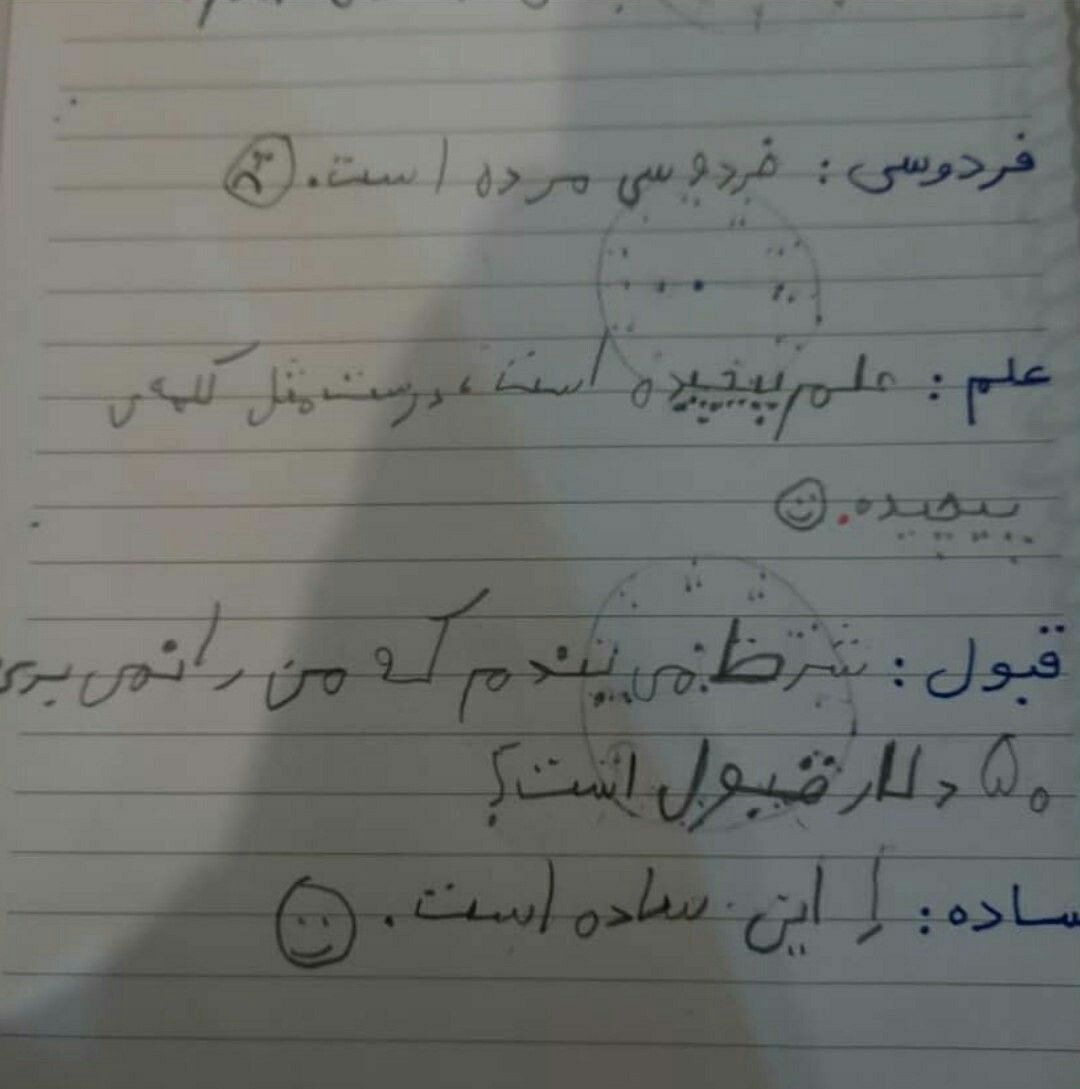 فردوسی: فردوسی مرده است.
علم: علم پیچیده است، درست مثل کلمه‌ی
پیچیده.
قبول: شرظ می بندم که من را نمی بری
۵۰ دلار قبول است؟
ساده: اِ این ساده است.